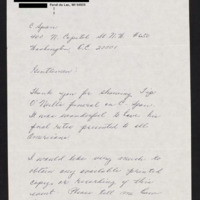 Fond du Lac, WI 54935
C-Span
400 N. Capitol St. N.W. #
Washington, D.C. 20001
Gentlemen:
Thank you for showing Tip
O'Neill's funeral on C-Span.
It was wonderful to have his
last rites presented to all
Americans.
I would like very much to
obtain any available printed
copy, or recording of this
event. Please tell me how